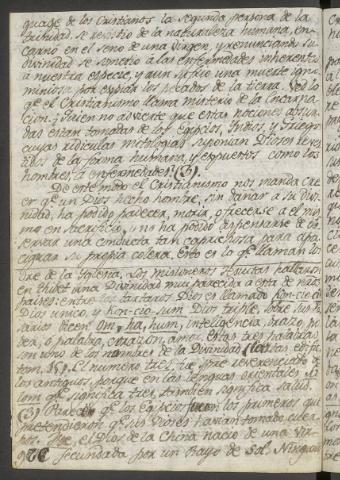 guage de los Cristianos la segunda persona de la
trinidad se revistio de la naturaleza humana, en-
carnó en el seno de una virgen, y renunciando su
divinidad se sometio à las enfermedades inherentes
à nuestra especie, y aun sufrio una muerte igno-
miniosa por expiar los pecados de la tierra. Ved lo
q.e el Cristianismo llama misterio de la Encarna-
cion. ¿Quien no advierte que estas nociones absur-
das estan tomadas de los Egipcios, Indios, y Griegos
cuyas ridiculas mitologias suponian Dioses reves-
tidos de la forma humana, y expuestos como los
hombres à enfermedades? (3).
De este modo el Cristianismo nos manda cre-
er q.e un Dios hecho hombre, sin dañar à su divi-
nidad, ha podido padecer, morir, ofrecerse à el mis-
mo en sacrificio, y no ha podido dispensarse de ob-
servar una conducta tan caprichosa para apa-
ciguar su propia colera. Esto es lo q.e llaman los
tre de la Galena. Los misioneros Jesuitas hallaron
en Thibet una Divinidad muy parecida à esta de nros
paises: entre los tartaros Dios es llamado Kon-cio-cik
Dios unico, y Kon-cio-sum Dios triple. Sobre sus ro-
sarios dicen Om, ha, hum, inteligencia, brazo, po-
der, o palabra, corazon, amor. Estas tres palabras
son uno de los nombres de la Divinidad
El numero tres fue siempre reverenciado de
los antiguos, porque en las lenguas orientales Sa-
lom q.e significa tres, tambien significa salud.
(3) Parece q.e los Egipcios fueron los primeros que
pretendieron q.e sus Dioses havian tomado cuer-
pos. Foe, el Dios de la China nacio de una Vir-
gen fecundada por un rayo de Sol. Ninguno